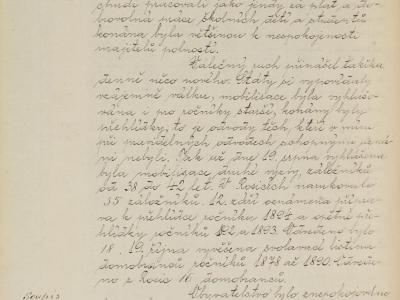 chudé pracovali jako jindy za plat, a do-
bovolná práce školních dětí a studentů
konána byla většinou k nespokojenosti
majitelů polností.
Válečný ruch přinášel takřka
denně něco nového. Státy si vypovídaly
vzájemně válku, mobilisace byla vyhlašo-
vána i pro ročníky starší, konány byly
přehlídky, to je odvody těch, kteří v míru
při pravidelných odvodech pohopnými uzná-
ni nebyli. Tak už dne 19. srpna vyhlášena
byla mobilisace druhé výzvy, záložníků
od 38 do 42 let. Z Rosic narukovalo
55 záložníků. 12. září oznámena příprava
va k přehlídce ročníku 1894 a opětné pře-
hlídky ročníků 1892 a 1893. Odvedeno bylo
18. 19. října vyvěšena svolávací listina
domobranců ročníků 1878 až 1890. Odvede-
no z Rosic 16 domobranců.
Obyvatelstvo bylo znepokojeno